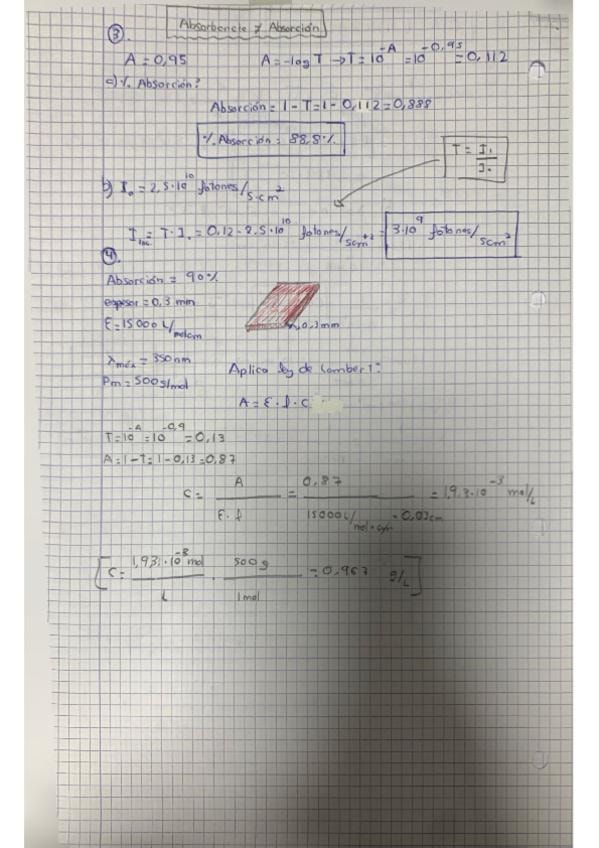 Absorbancia ≠ Absorción
③
A = 0,95 A = -log T → T = 10^-A = 10^-0,95 = 0,112
a) % Absorción?
Absorción = 1 - T = 1 - 0,112 = 0,888
% Absorción = 88,8%
T = I₁/I₀
b) I₀ = 2,5·10^10 fotones/s·cm²
= T · I₀ = 0,12 · 2,5·10^10 fotones/scm² = 3·10^9 fotones/scm²
④
Absorción = 90%
espesor = 0,3 mm
0,3mm
ε = 15000 L/molcm
λmáx = 350nm
Aplico ley de Lambert:
Pm = 500g/mol
A = ε · l · c
T = 10^-A = 10^-0,9 = 0,13
A = 1 - T = 1 - 0,13 = 0,87
c = A / ε · l = 0,87 / 15000 L/mol·cm · 0,03cm = 1,93·10^-3 mol/L
[c = 1,93·10^-3 mol / L · 500g / 1mol = 0,967 g/L]